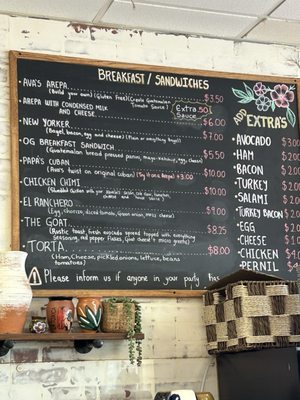 BREAKFAST / SANDWICHES
• AVA'S AREPA $3.50
(Build your own) (Gluten Free) (Create Guatemalan Tomato Sauce)
Extra Sauce .50
AREPA WITH CONDENSED MILK
AND CHEESE $6.00
• NEW YORKER $7.00
(Bagel, bacon, egg and cheese) (Plain or everything bagel)
• OG BREAKFAST SANDWICH $5.50
(Guatemalan bread pressed panini, mayo, egg, cheese)
• PAPA'S CUBAN $10.00
(Ava's twist on original cuban)
• CHICKEN CHIMI $10.00
• EL RANCHERO $9.00
(Egg, chorizo, diced tomato, green onion, mixed cheese)
• THE GOAT $8.25
(Rustic toast, fresh avocado spread topped with everything
seasoning, red pepper flakes, goat cheese & micro greens)
• TORTA $8.00
(Ham, Cheese, pickled onions, lettuce, beans
tomatoes)
Please inform us if anyone in your party has
ADD EXTRA'S
• AVOCADO $3.0
• HAM $2.0
• BACON $2.0
• TURKEY $2.0
• SALAMI $2.0
• TURKEY BACON $2.0
• EGG $2.0
• CHEESE $1.0
• CHICKEN $
• PERNIL $